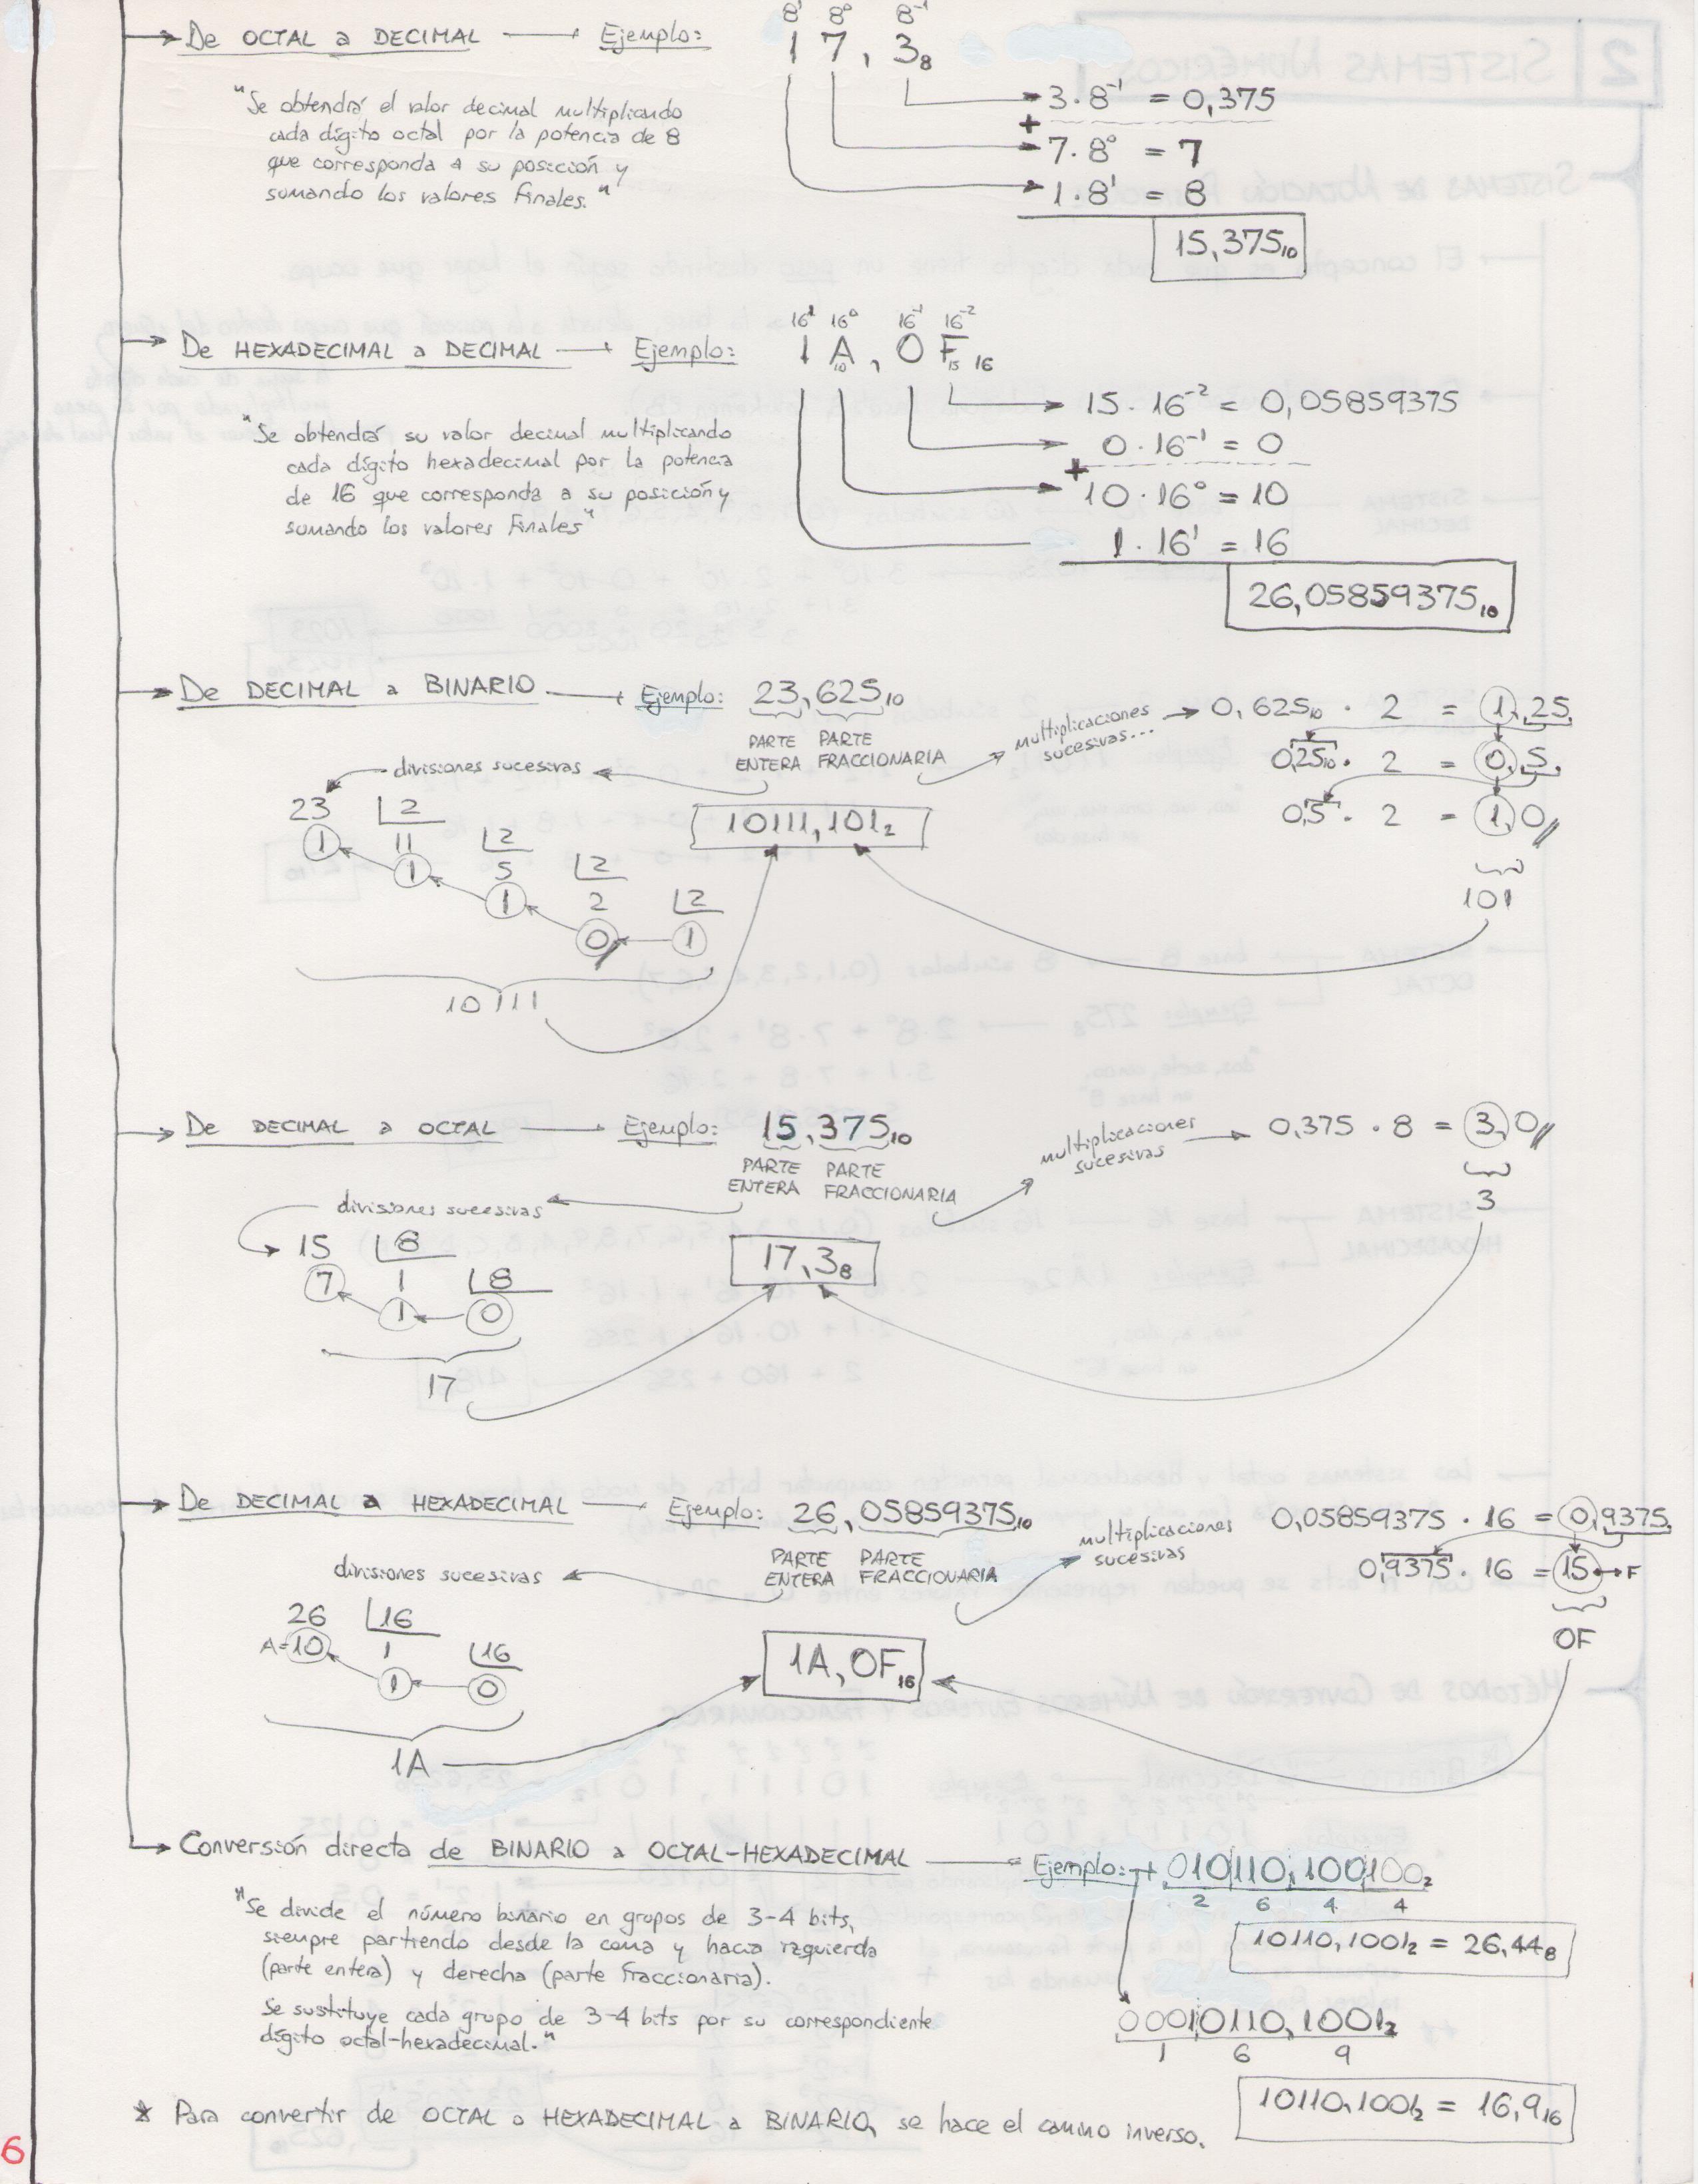 8¹ 8⁰ 8⁻¹
De OCTAL a DECIMAL → Ejemplo: 1 7 , 3₈
"Se obtendrá el valor decimal multiplicando
cada dígito octal por la potencia de 8
que corresponda a su posición y
sumando los valores finales."
3 · 8⁻¹ = 0,375
+
7 · 8⁰ = 7
1 · 8¹ = 8
15,375₁₀
16¹ 16⁰ 16⁻¹ 16⁻²
De HEXADECIMAL a DECIMAL → Ejemplo: 1 A , 0 F ₁₆
10 15
"Se obtendrá su valor decimal multiplicando
cada dígito hexadecimal por la potencia
de 16 que corresponda a su posición y
sumando los valores finales"
15 · 16⁻² = 0,05859375
0 · 16⁻¹ = 0
+
10 · 16⁰ = 10
1 · 16¹ = 16
26,05859375₁₀
De DECIMAL a BINARIO → Ejemplo: 23,625₁₀
PARTE ENTERA
PARTE FRACCIONARIA
multiplicaciones
sucesivas...
0,625₁₀ · 2 = 1,25
0,25₁₀ · 2 = 0,5
0,5 · 2 = 1,0
101
divisiones sucesivas
23 2
1 11 2
1 5 2
1 2 2
0 1
10111
10111,101₂
De DECIMAL a OCTAL → Ejemplo: 15,375₁₀
PARTE ENTERA
PARTE FRACCIONARIA
multiplicaciones
sucesivas
0,375 · 8 = 3,0
3
divisiones sucesivas
15 8
7 1 8
1 0
17
17,3₈
De DECIMAL a HEXADECIMAL → Ejemplo: 26,05859375₁₀
PARTE ENTERA
PARTE FRACCIONARIA
multiplicaciones
sucesivas
0,05859375 · 16 = 0,9375
0,9375 · 16 = 15 → F
0F
divisiones sucesivas
26 16
A=10 1 16
1 0
1A
1A,0F₁₆
Conversión directa de BINARIO a OCTAL-HEXADECIMAL → Ejemplo: 010110,100100₂
2 6 4 4
10110,1001₂ = 26,44₈
"Se divide el número binario en grupos de 3-4 bits,
siempre partiendo desde la coma y hacia izquierda
(parte entera) y derecha (parte fraccionaria).
Se sustituye cada grupo de 3-4 bits por su correspondiente
dígito octal-hexadecimal."
00010110,1001₂
1 6 9
10110,1001₂ = 16,9₁₆
* Para convertir de OCTAL o HEXADECIMAL a BINARIO, se hace el camino inverso.
6